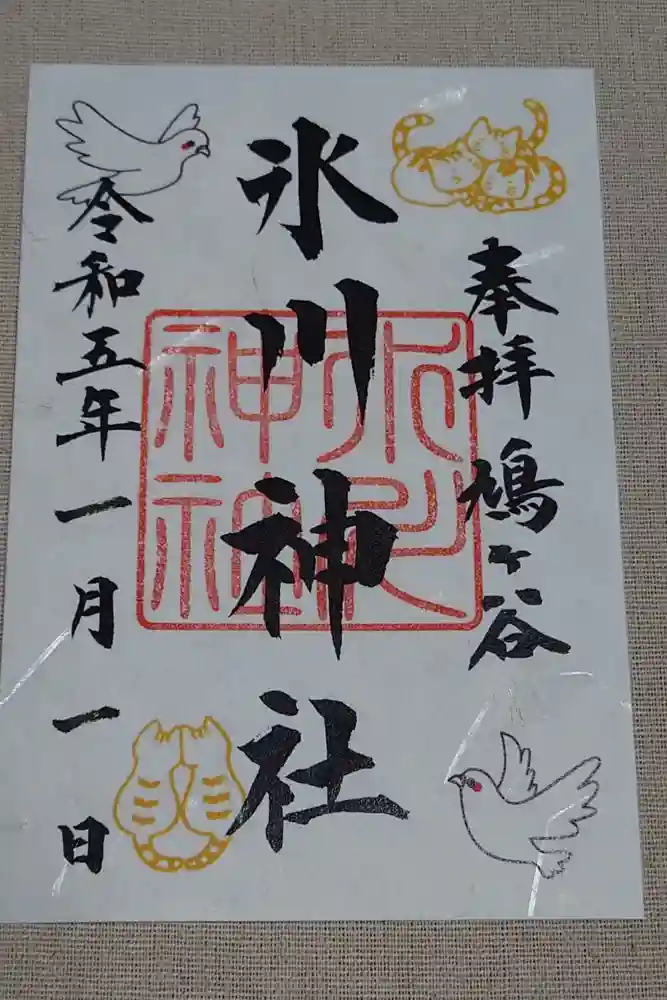 奉拝 鳩ヶ谷
氷川神社
氷川
神社
令和五年一月一日